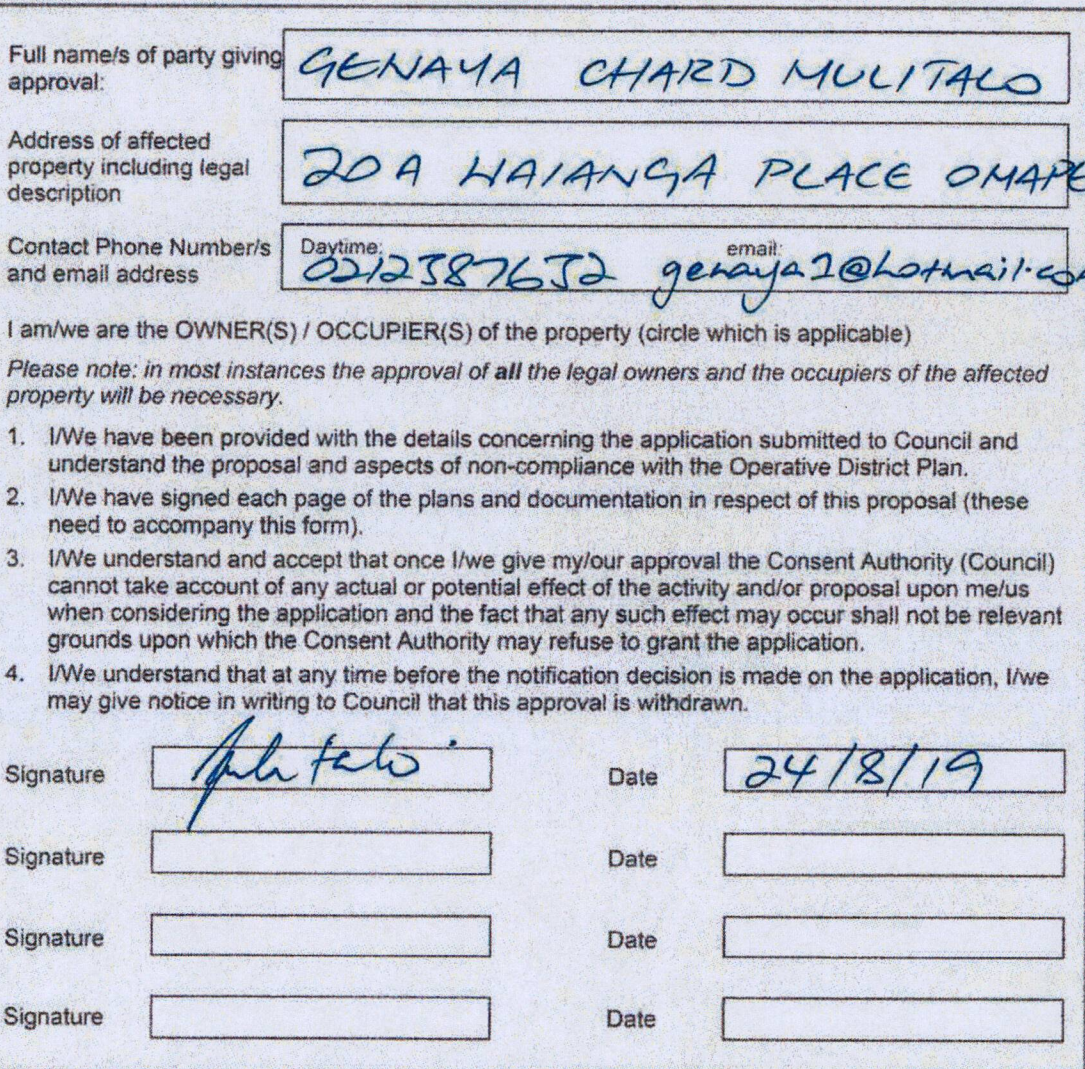 Full name/s of party giving approval: GENAYA CHARD MULITALO
Address of affected property including legal description 20A WAIANGA PLACE OMAPE
Contact Phone Number/s and email address Daytime: 0212387632 email: genaya1@hotmail.com
I am/we are the OWNER(S) / OCCUPIER(S) of the property (circle which is applicable)
Please note: in most instances the approval of all the legal owners and the occupiers of the affected
property will be necessary.
1. I/We have been provided with the details concerning the application submitted to Council and
understand the proposal and aspects of non-compliance with the Operative District Plan.
2. I/We have signed each page of the plans and documentation in respect of this proposal (these
need to accompany this form).
3. I/We understand and accept that once I/we give my/our approval the Consent Authority (Council)
cannot take account of any actual or potential effect of the activity and/or proposal upon me/us
when considering the application and the fact that any such effect may occur shall not be relevant
grounds upon which the Consent Authority may refuse to grant the application.
4. I/We understand that at any time before the notification decision is made on the application, I/we
may give notice in writing to Council that this approval is withdrawn.
Signature Date 24/8/19
Signature Date
Signature Date
Signature Date